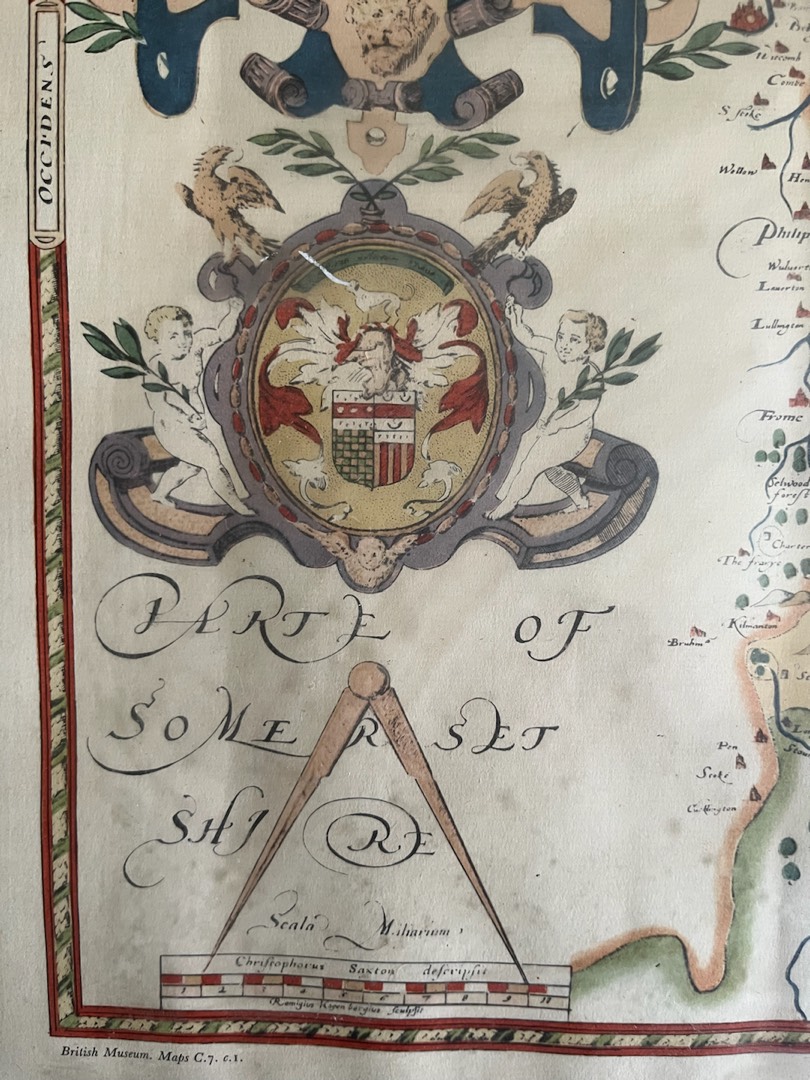 OCCIDENS
Wiscomb
Combe
Wolton
Philip
Laverton
Lullington
Frome
Selwood
forest
Charter
The frarye
Kilmanton
Bruham
Pen
Cucklington
PARTE OF
SOMERSET
SHIRE
Scala Miliarium
Christophorus Saxton descripsit
1 2 3 4 5 6 7 8 9 10
Remigius Hogenbergius sculpsit
British Museum. Maps C.7. c.1.